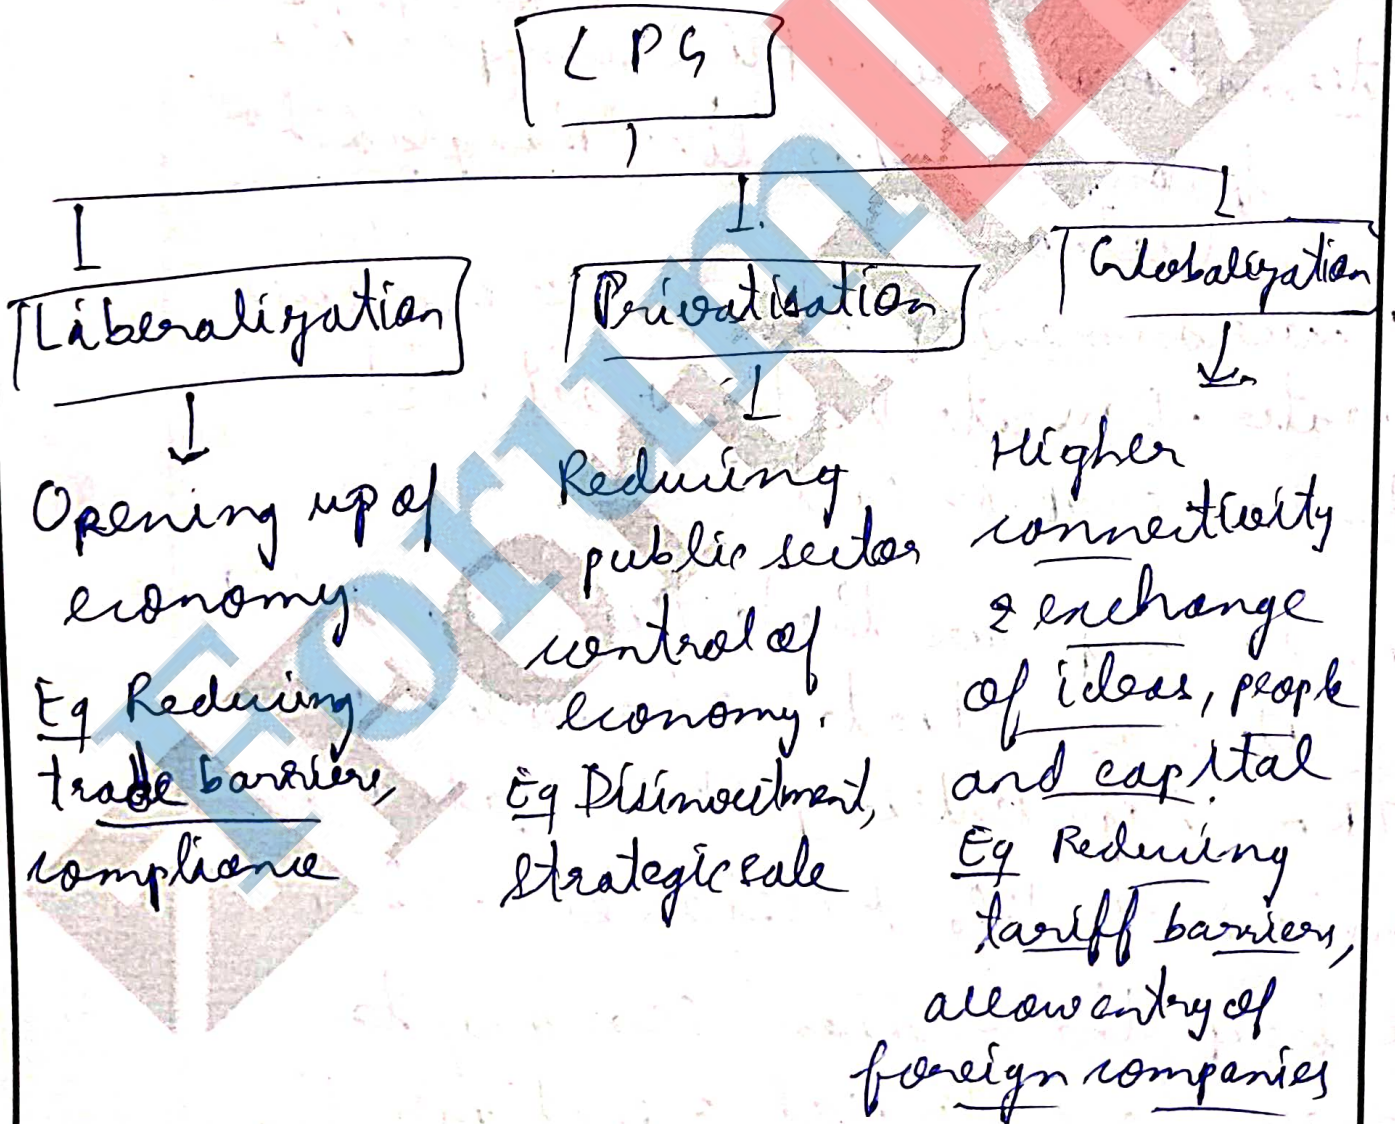 LPG
Liberalization
Privatisation
Globalization
Opening up of
economy.
Eg Reducing
trade barriers,
compliance
Reducing
public sector
control of
economy.
Eg Disinvestment,
strategic sale
Higher
connectivity
& exchange
of ideas, people
and capital
Eg Reducing
tariff barriers,
allow entry of
foreign companies
Forum